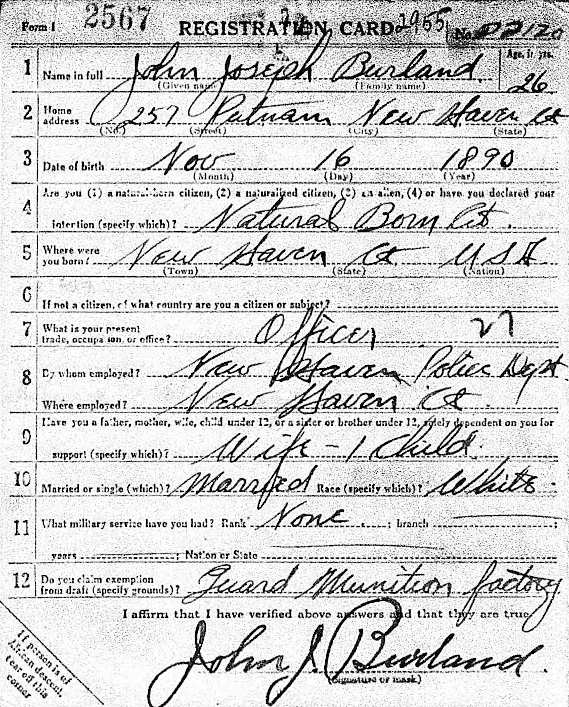 Form 1 2567 REGISTRATION CARD 2955 No.
Age, in yrs.
1 Name in full John Joseph Burland 26
(Given name) (Family name)
2 Home address 257 Putnam New Haven Ct
(No.) (Street) (City) (State)
3 Date of birth Nov 16 1890
(Month) (Day) (Year)
4 Are you (1) a natural-born citizen, (2) a naturalized citizen, (3) an alien, (4) or have you declared your
intention (specify which)? Natural Born Cit.
5 Where were you born? New Haven Ct USA
(Town) (State) (Nation)
6 If not a citizen, of what country are you a citizen or subject?
7 What is your present trade, occupation, or office? Officer 27
8 By whom employed? New Haven Police Dept
Where employed? New Haven Ct
9 Have you a father, mother, wife, child under 12, or a sister or brother under 12, solely dependent on you for
support (specify which)? Wife - 1 Child
10 Married or single (which)? Married Race (specify which)? White
11 What military service have you had? Rank None ; branch ;
years ; Nation or State
12 Do you claim exemption from draft (specify grounds)? Guard Munition factory
I affirm that I have verified above answers and that they are true
John J. Burland.
(Signature or mark)
If person is of
African descent,
tear off this
corner